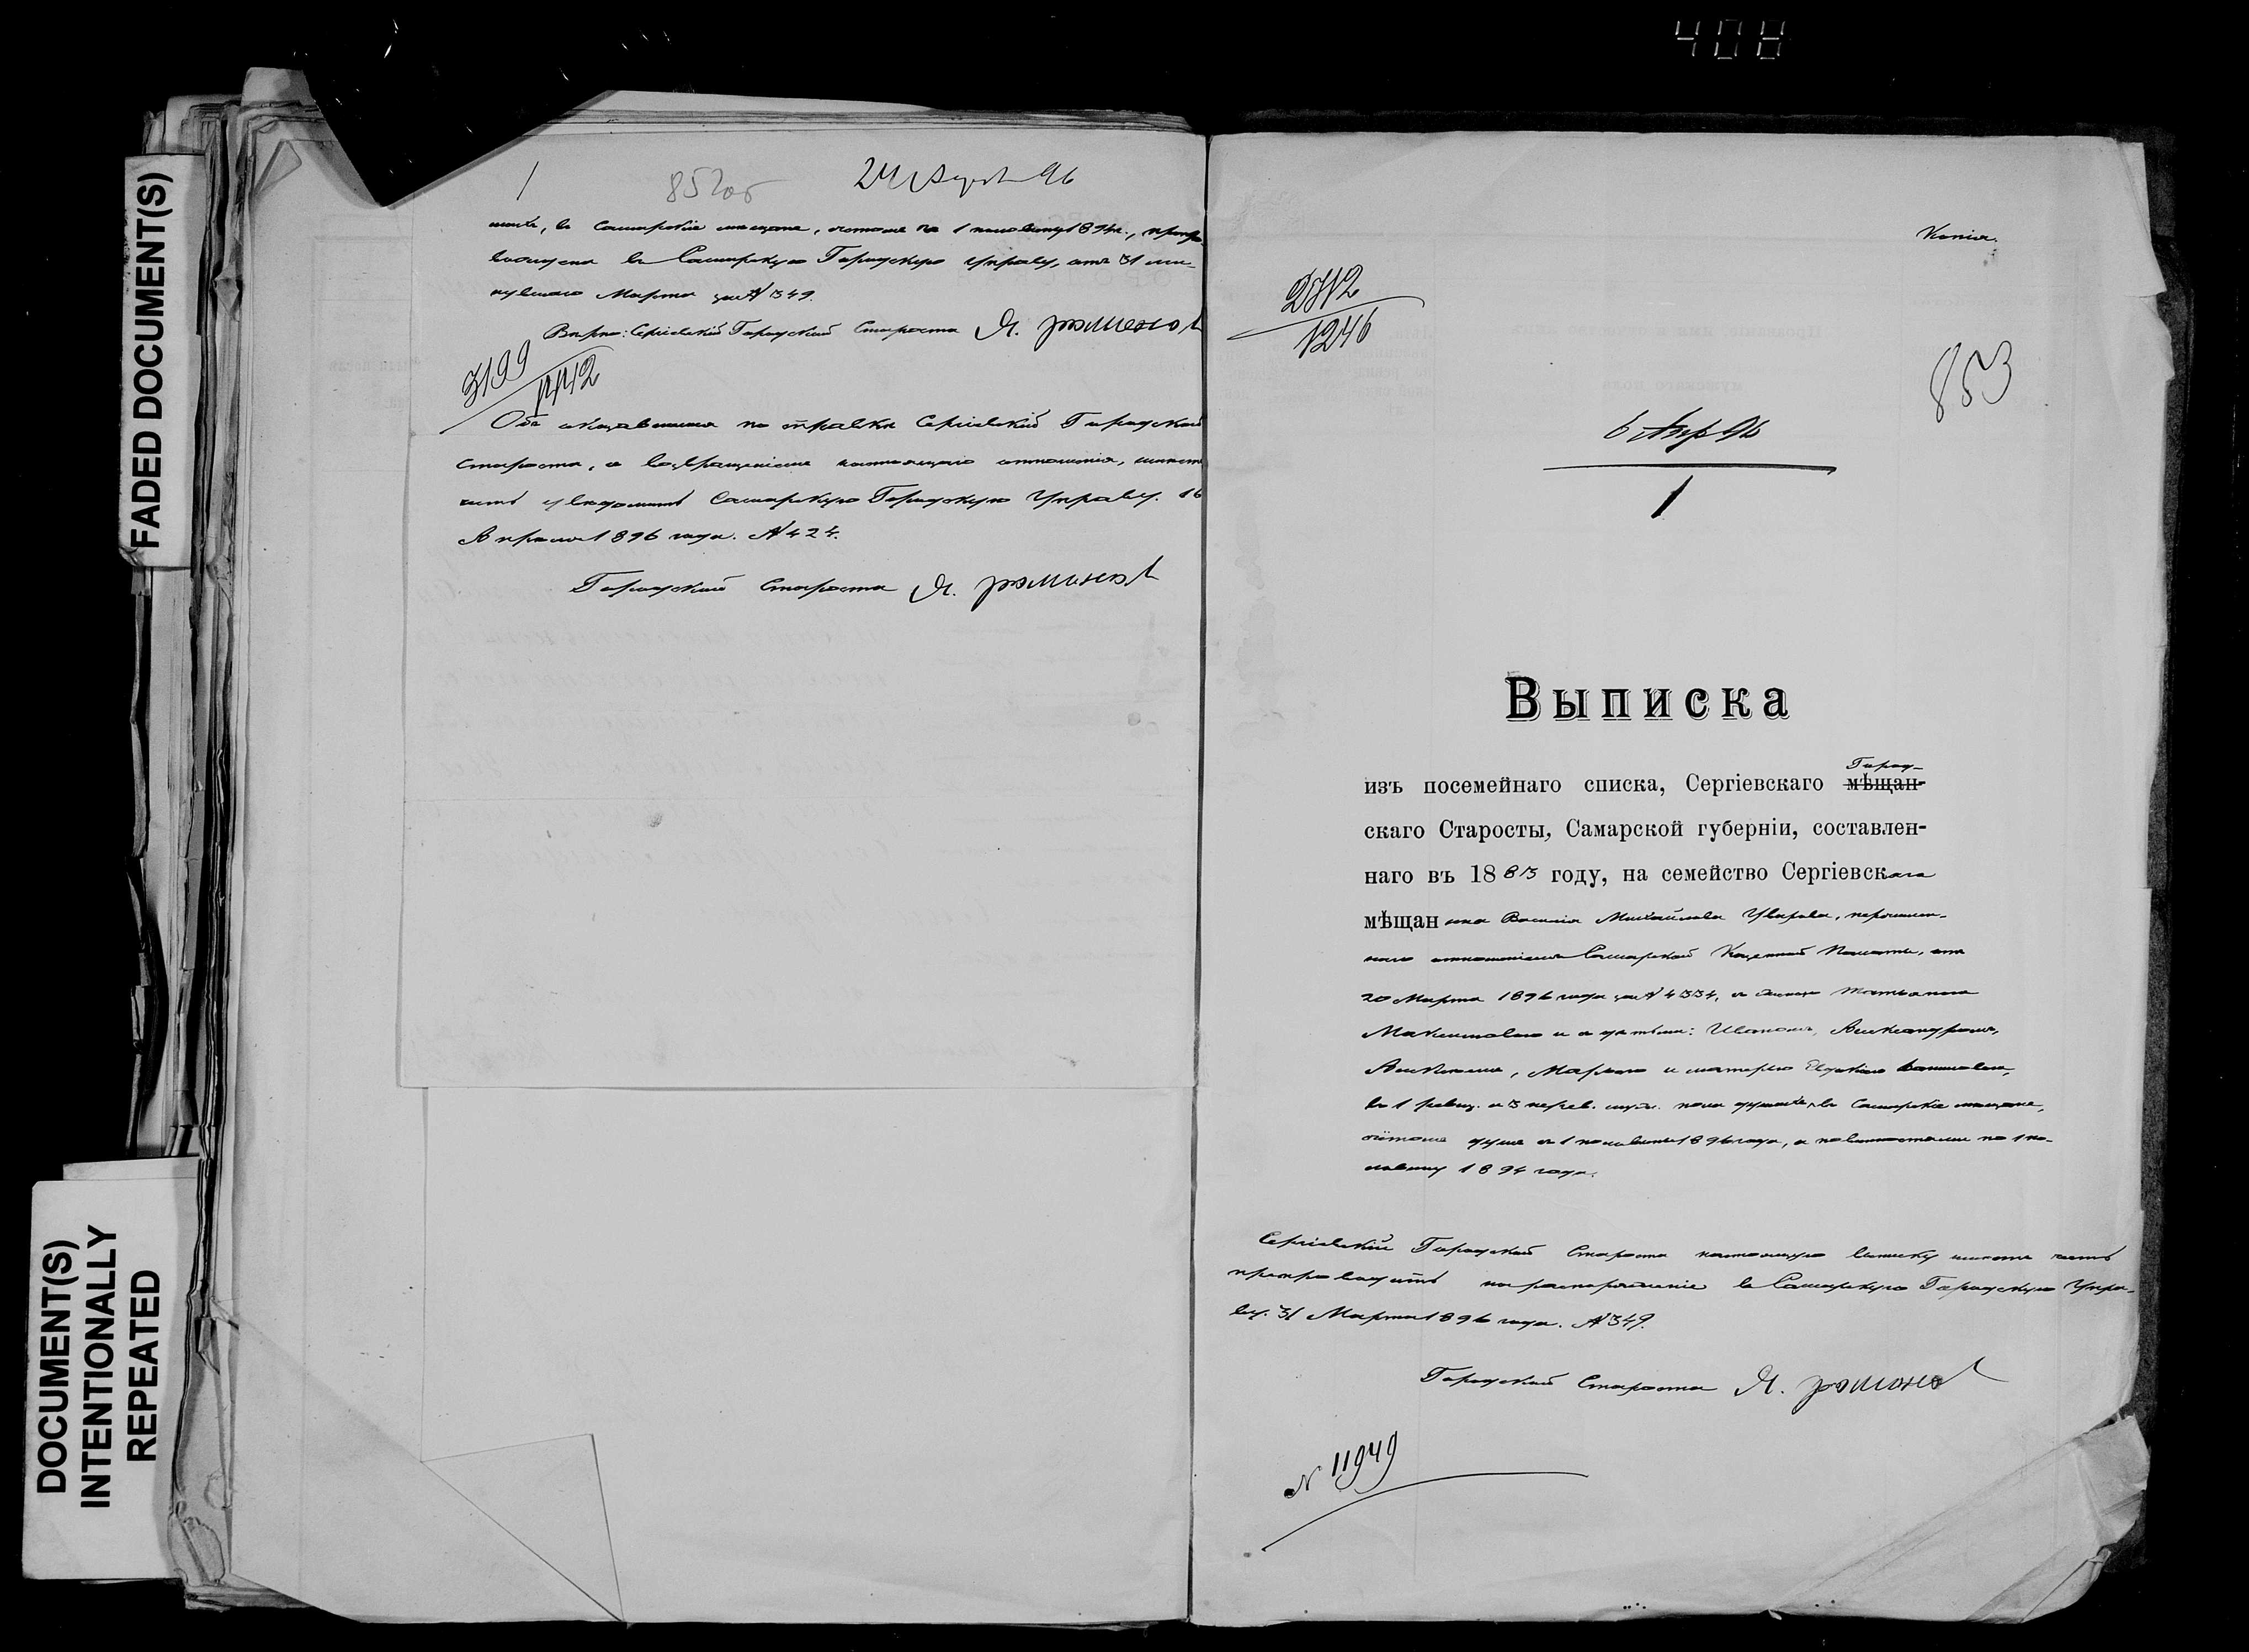 408
FADED DOCUMENT(S)
DOCUMENT(S)
INTENTIONALLY
REPEATED
1
852об
24 96
въ Самарскіе мещане, 1 половину 1894г.,
въ Самарскую Городскую Управу, отъ 31 ми-
нувшаго Марта за № 349.
Верно: Сергіевскій Городской Староста
3199
Объ оказавшемся по справке Сергіевскій Городской
Староста, съ возвращеніемъ настоящаго отношенія, имеетъ
честь уведомить Самарскую Городскую Управу. 16
Апреля 1896 года. № 424.
Городской Староста
Копія.
1246
853
6 Апр 96
1
Выписка
Город-
изъ посемейнаго списка, Сергіевскаго мѣщан-
скаго Старосты, Самарской губерніи, составлен-
наго въ 1883 году, на семейство Сергіевскаго
мѣщанина Василія Михайлова Уварова, перечислен-
наго отношеніемъ Самарской Казенной Палаты, отъ
20 Марта 1896 года за № 4334, съ женою Татьяною
Максимовою и съ детьми: Иваномъ, Александромъ,
Марьею и матерью
въ 1 ревиз. и 3 нерев. муж. пола душахъ, въ Самарскіе мещане,
душъ съ 1 половины 1896 года, а повинностями по 1 по-
ловину 1894 года.
Сергіевскій Городской Староста настоящую выписку имеетъ честь
препроводить на распоряженіе въ Самарскую Городскую Упра-
ву. 31 Марта 1896 года. № 349.
Городской Староста
№ 11949